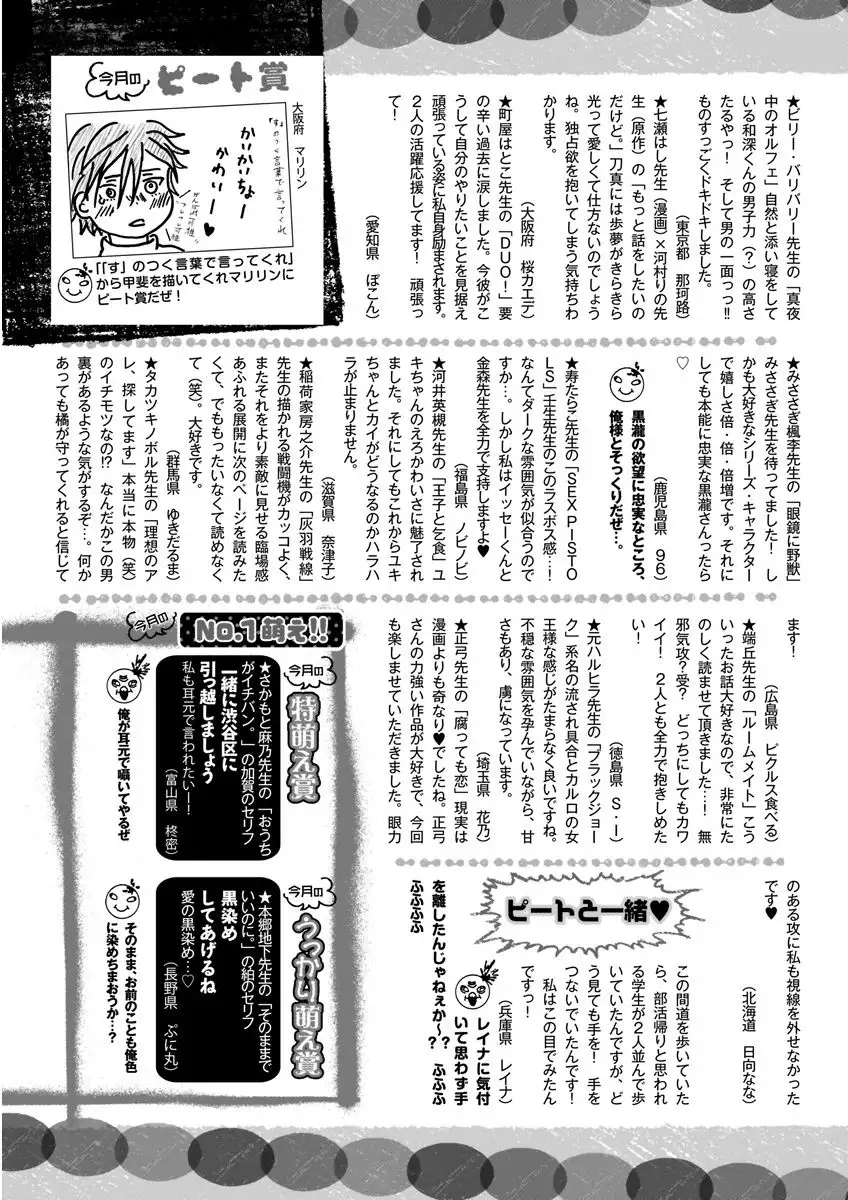 ★ビリー・バリバリー先生の「真夜
中のオルフェ」自然と添い寝をして
いる和深くんの男子力(?)の高さ
たるやっ! そして男の一面っっ!!
ものすっごくドキドキしました。
(東京都 那珂路)
★七瀬はし先生(漫画)×河村りの先
生(原作)の「もっと話をしたいの
だけど。」刀真には歩夢がきらきら
光って愛しくて仕方ないのでしょう
ね。独占欲を抱いてしまう気持ちわ
かります。
(大阪府 桜カエデ)
★町屋はとこ先生の「DUO!」要
の辛い過去に涙しました。今彼がこ
うして自分のやりたいことを見据え
頑張っている姿に私自身励まされます。
2人の活躍応援してます! 頑張っ
て!
(愛知県 ぽこん)
今月の
ピート賞
大阪府 マリリン
「す」のつく言葉で言ってくれ
かいかいちょー
かわいー♥
「「す」のつく言葉で言ってくれ」
から甲斐を描いてくれマリリンに
ピート賞だぜ!
★みささぎ楓李先生の「眼鏡に野獣」
みささぎ先生を待ってました! し
かも大好きなシリーズ・キャラクター
で嬉しさ倍・倍・倍増です。それに
しても本能に忠実な黒瀧さんったら
♡
(鹿児島県 96)
黒瀧の欲望に忠実なところ、
俺様とそっくりだぜ…。
★寿たらこ先生の「SEX PISTO
LS」壬生先生のこのラスボス感…!
なんてダークな雰囲気が似合うので
すか…。しかし私はイッセーくんと
金森先生を全力で支持しますよ♥
(福島県 ノビノビ)
★河井英槻先生の「王子と乞食」ユ
キちゃんのえろかわいさに魅了され
ました。それにしてもこれからユキ
ちゃんとカイがどうなるのかハラハ
ラが止まりません。
(滋賀県 奈津子)
★稲荷家房之介先生の「灰羽戦線」
先生の描かれる戦闘機がカッコよく、
またそれをより素敵に見せる臨場感
あふれる展開に次のページを読みた
くて、でももったいなくて読めなく
て(笑)。大好きです。
(群馬県 ゆきだるま)
★タカツキノボル先生の「理想のア
レ、探してます」本当に本物(笑)
のイチモツなの!? なんだかこの男
裏があるような気がするぞ…。何か
あっても橘が守ってくれると信じて
ます!
(広島県 ピクルス食べる)
★端丘先生の「ルームメイト」こう
いったお話大好きなので、非常にた
のしく読ませて頂きました…! 無
邪気攻?受? どっちにしてもカワ
イイ! 2人とも全力で抱きしめた
い!
(徳島県 S・I)
★元ハルヒラ先生の「ブラックジョー
ク」系名の流され具合とカルロの女
王様な感じがたまらなく良いですね。
不穏な雰囲気を孕んでいながら、甘
さもあり、虜になっています。
(埼玉県 花乃)
★正弓先生の「腐っても恋」現実は
漫画よりも奇なり♥でしたね。正弓
さんの力強い作品が大好きで、今回
も楽しませていただきました。眼力
のある攻に私も視線を外せなかった
です♥
(北海道 日向なな)
ピートと一緒♥
この間道を歩いていた
ら、部活帰りと思われ
る学生が2人並んで歩
いていたんですが、ど
う見ても手を! 手を
つないでいたんです!
私はこの目でみたん
ですっ!
(兵庫県 レイナ)
レイナに気付
いて思わず手
を離したんじゃねぇか〜? ふふふ
ふふふふ
今月の
No.1萌え!!
今月の
特萌え賞
★さかもと麻乃先生の「おうち
がイチバン。」の加賀のセリフ
一緒に渋谷区に
引っ越しましょう
私も耳元で言われたいー!
(富山県 柊密)
俺が耳元で囁いてやるぜ
今月の
うっかり萌え賞
★本郷地下先生の「そのままで
いいのに。」の紺のセリフ
黒染め
してあげるね
愛の黒染め…♡
(長野県 ぷに丸)
そのまま、お前のことも俺色
に染めちまおうか…?